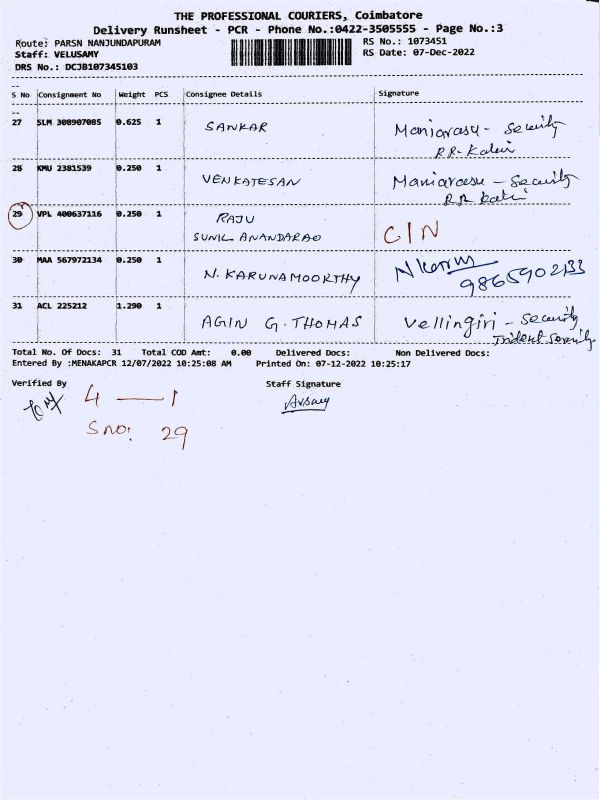 THE PROFESSIONAL COURIERS, Coimbatore
Delivery Runsheet - PCR - Phone No.:0422-3505555 - Page No.:3
Route: PARSN NANJUNDAPURAM RS No.: 1073451
Staff: VELUSAMY RS Date: 07-Dec-2022
DRS No.: DCJB107345103
S No Consignment No Weight PCS Consignee Details Signature
27 SLM 308907085 0.625 1 SANKAR Maniarasu - Security
28 KMU 2381539 0.250 1 VENKATESAN Maniarasu - Security
29 VPL 400637116 0.250 1 RAJU
SUNIL ANANDARAO C/N
30 MAA 567972134 0.250 1 N. KARUNAMOORTHY 9865902133
31 ACL 225212 1.290 1 AGIN G. THOMAS Vellingiri - Security
Total No. Of Docs: 31 Total COD Amt: 0.00 Delivered Docs: Non Delivered Docs:
Entered By :MENAKAPCR 12/07/2022 10:25:08 AM Printed On: 07-12-2022 10:25:17
Verified By Staff Signature
4 — 1
S no: 29